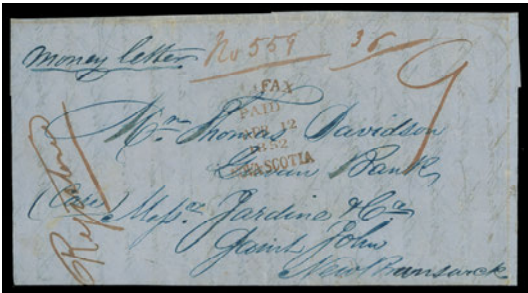 Money letter
No 559
36
9
FAX
PAID
AP 12
1852
NOVASCOTIA
Mr Thomas Davidson
Green Bank
(Care) Messrs Jardine & Co
Saint John
New Brunswick